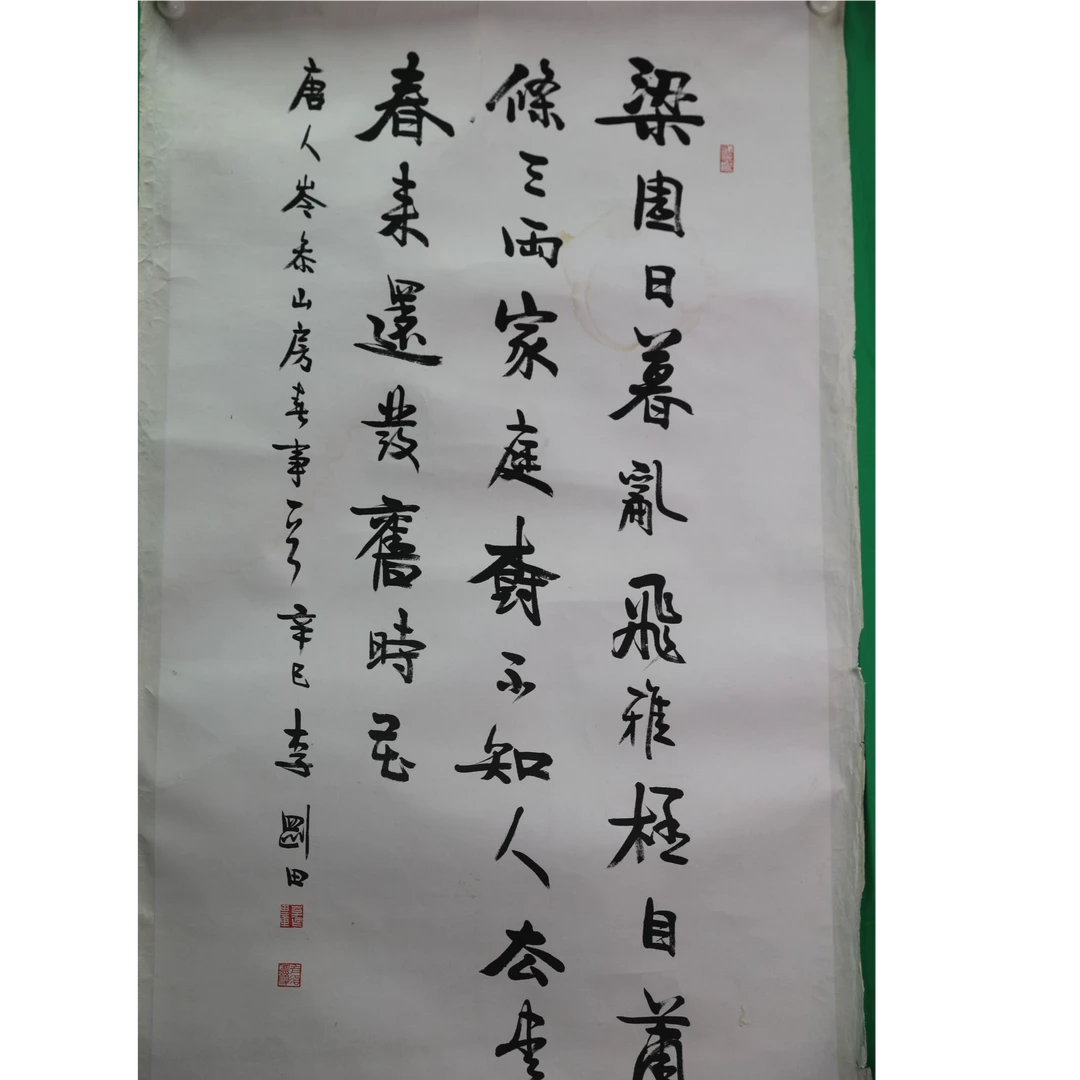 梁園日暮亂飛雅極目蕭
條三兩家庭樹不知人去盡
春来還發舊時花
唐人岑参山房春事一首辛巳李剛田